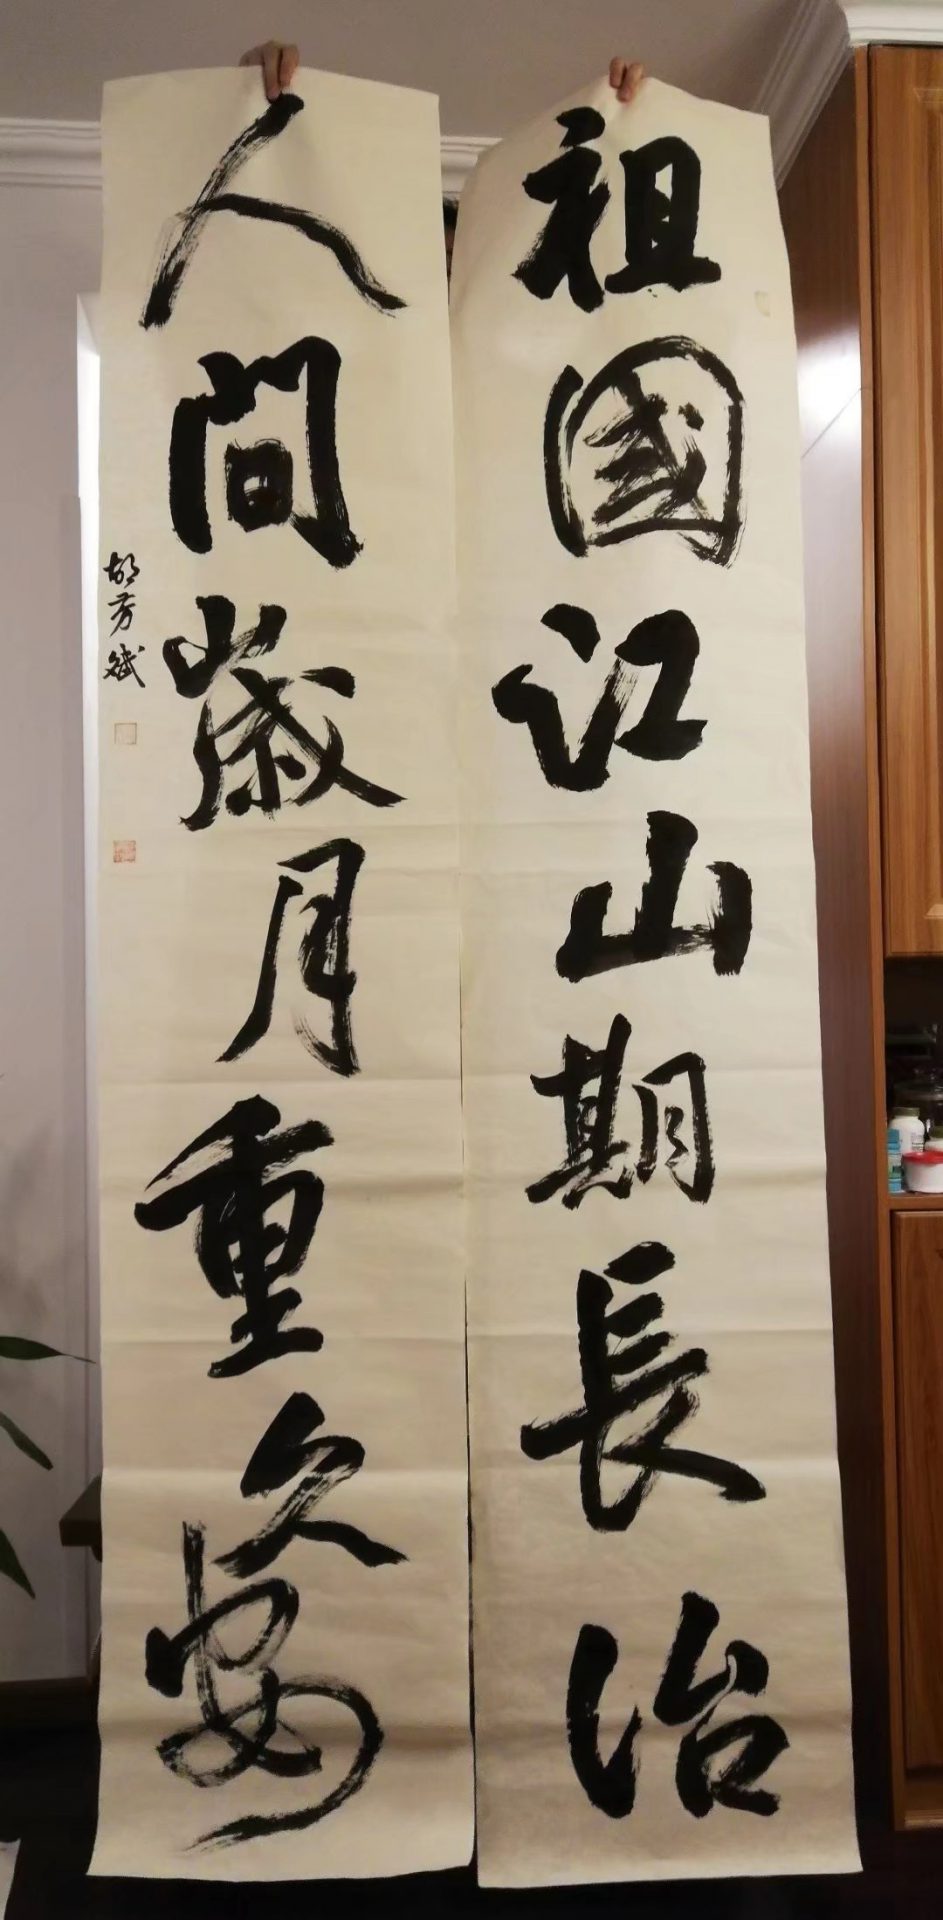 祖國江山期長治
人間歲月重久安
胡芳斌